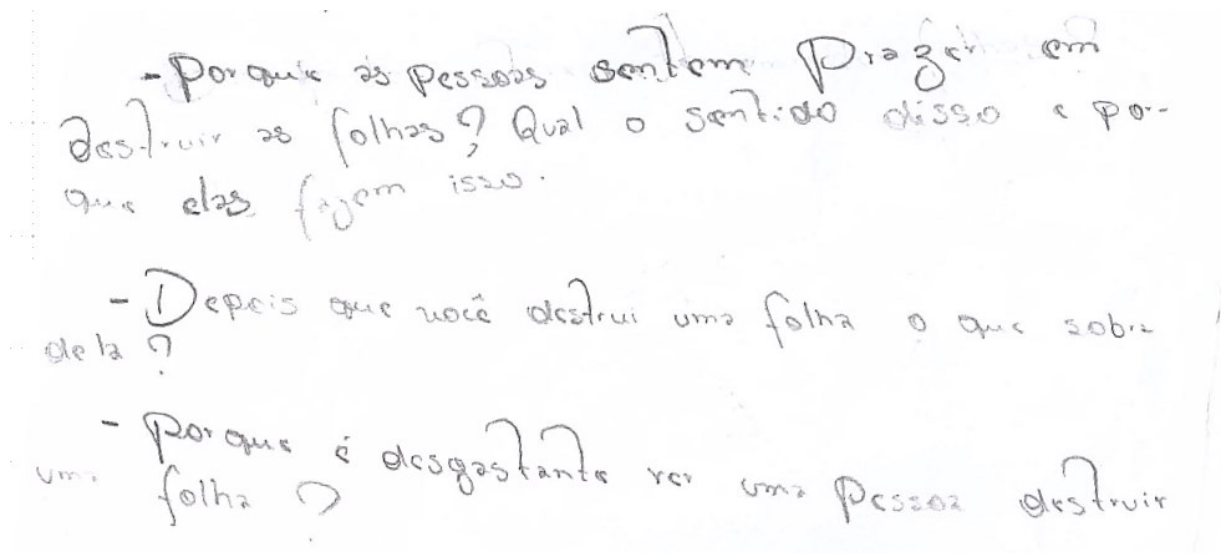 - Porque as pessoas sentem prazer em
destruir as folhas? Qual o sentido disso e por-
que elas fazem isso.
- Depois que você destrui uma folha o que sobra
dela?
- Porque é desgastante ver uma pessoa destruir
uma folha?